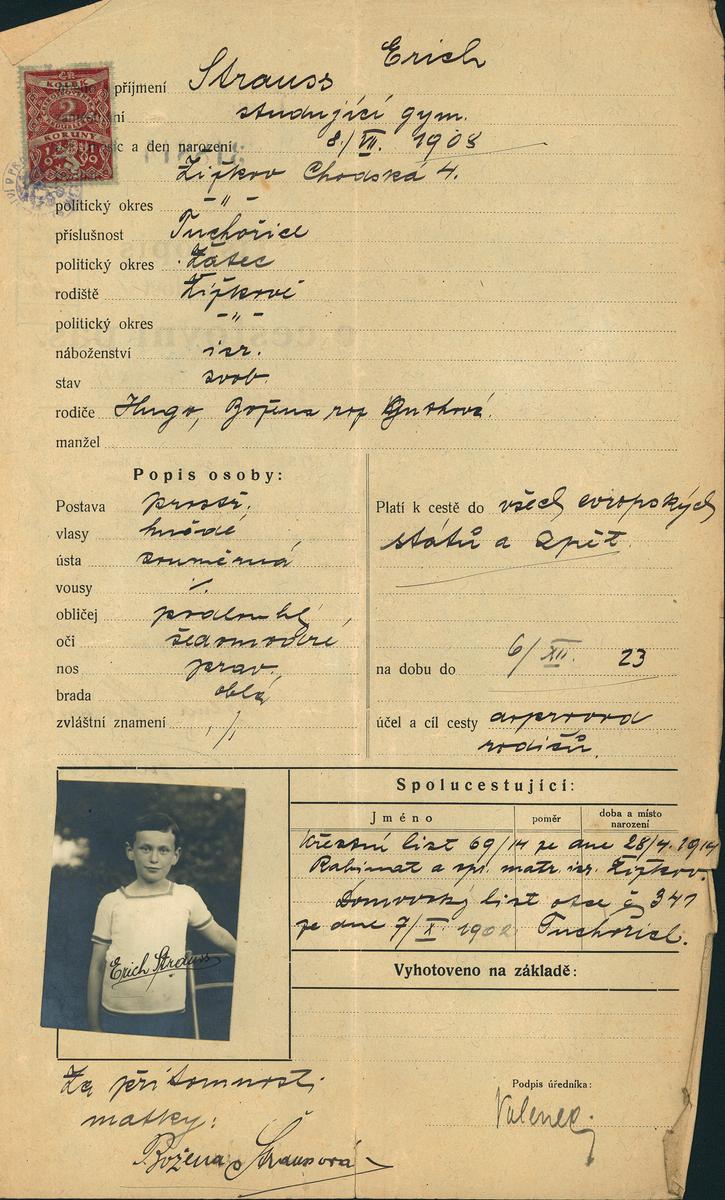 Erich
příjmení Strauss
studující gym.
a den narození 8./VII. 1908
Žižkov Chodská 4.
politický okres -"-
příslušnost Tuchořice
politický okres Žatec
rodiště Žižkově
politický okres -"-
náboženství isr.
stav svob.
rodiče Hugo, Božena roz
manžel
Popis osoby:
Postava prostř.
vlasy hnědé
ústa souměrná
vousy ./.
obličej podlouhl.
oči šedomodré
nos prav.
brada oblá
zvláštní znamení ./.
Platí k cestě do všech evropských
států a zpět.
na dobu do 6/XII. 23
účel a cíl cesty doprovod
rodičů.
Spolucestující:
Jméno poměr doba a místo
narození
Křestní list 69/14 ze dne 28/4. 1914
Rabinat a matr. isr. Žižkov.
Domovský list otce č. 341
ze dne 7/X. 1902 Tuchořice.
Vyhotoveno na základě:
KOLEK
2
KORUNY
1919
Erich Strauss
Za přítomnosti
matky:
Božena Straussová
Podpis úředníka: